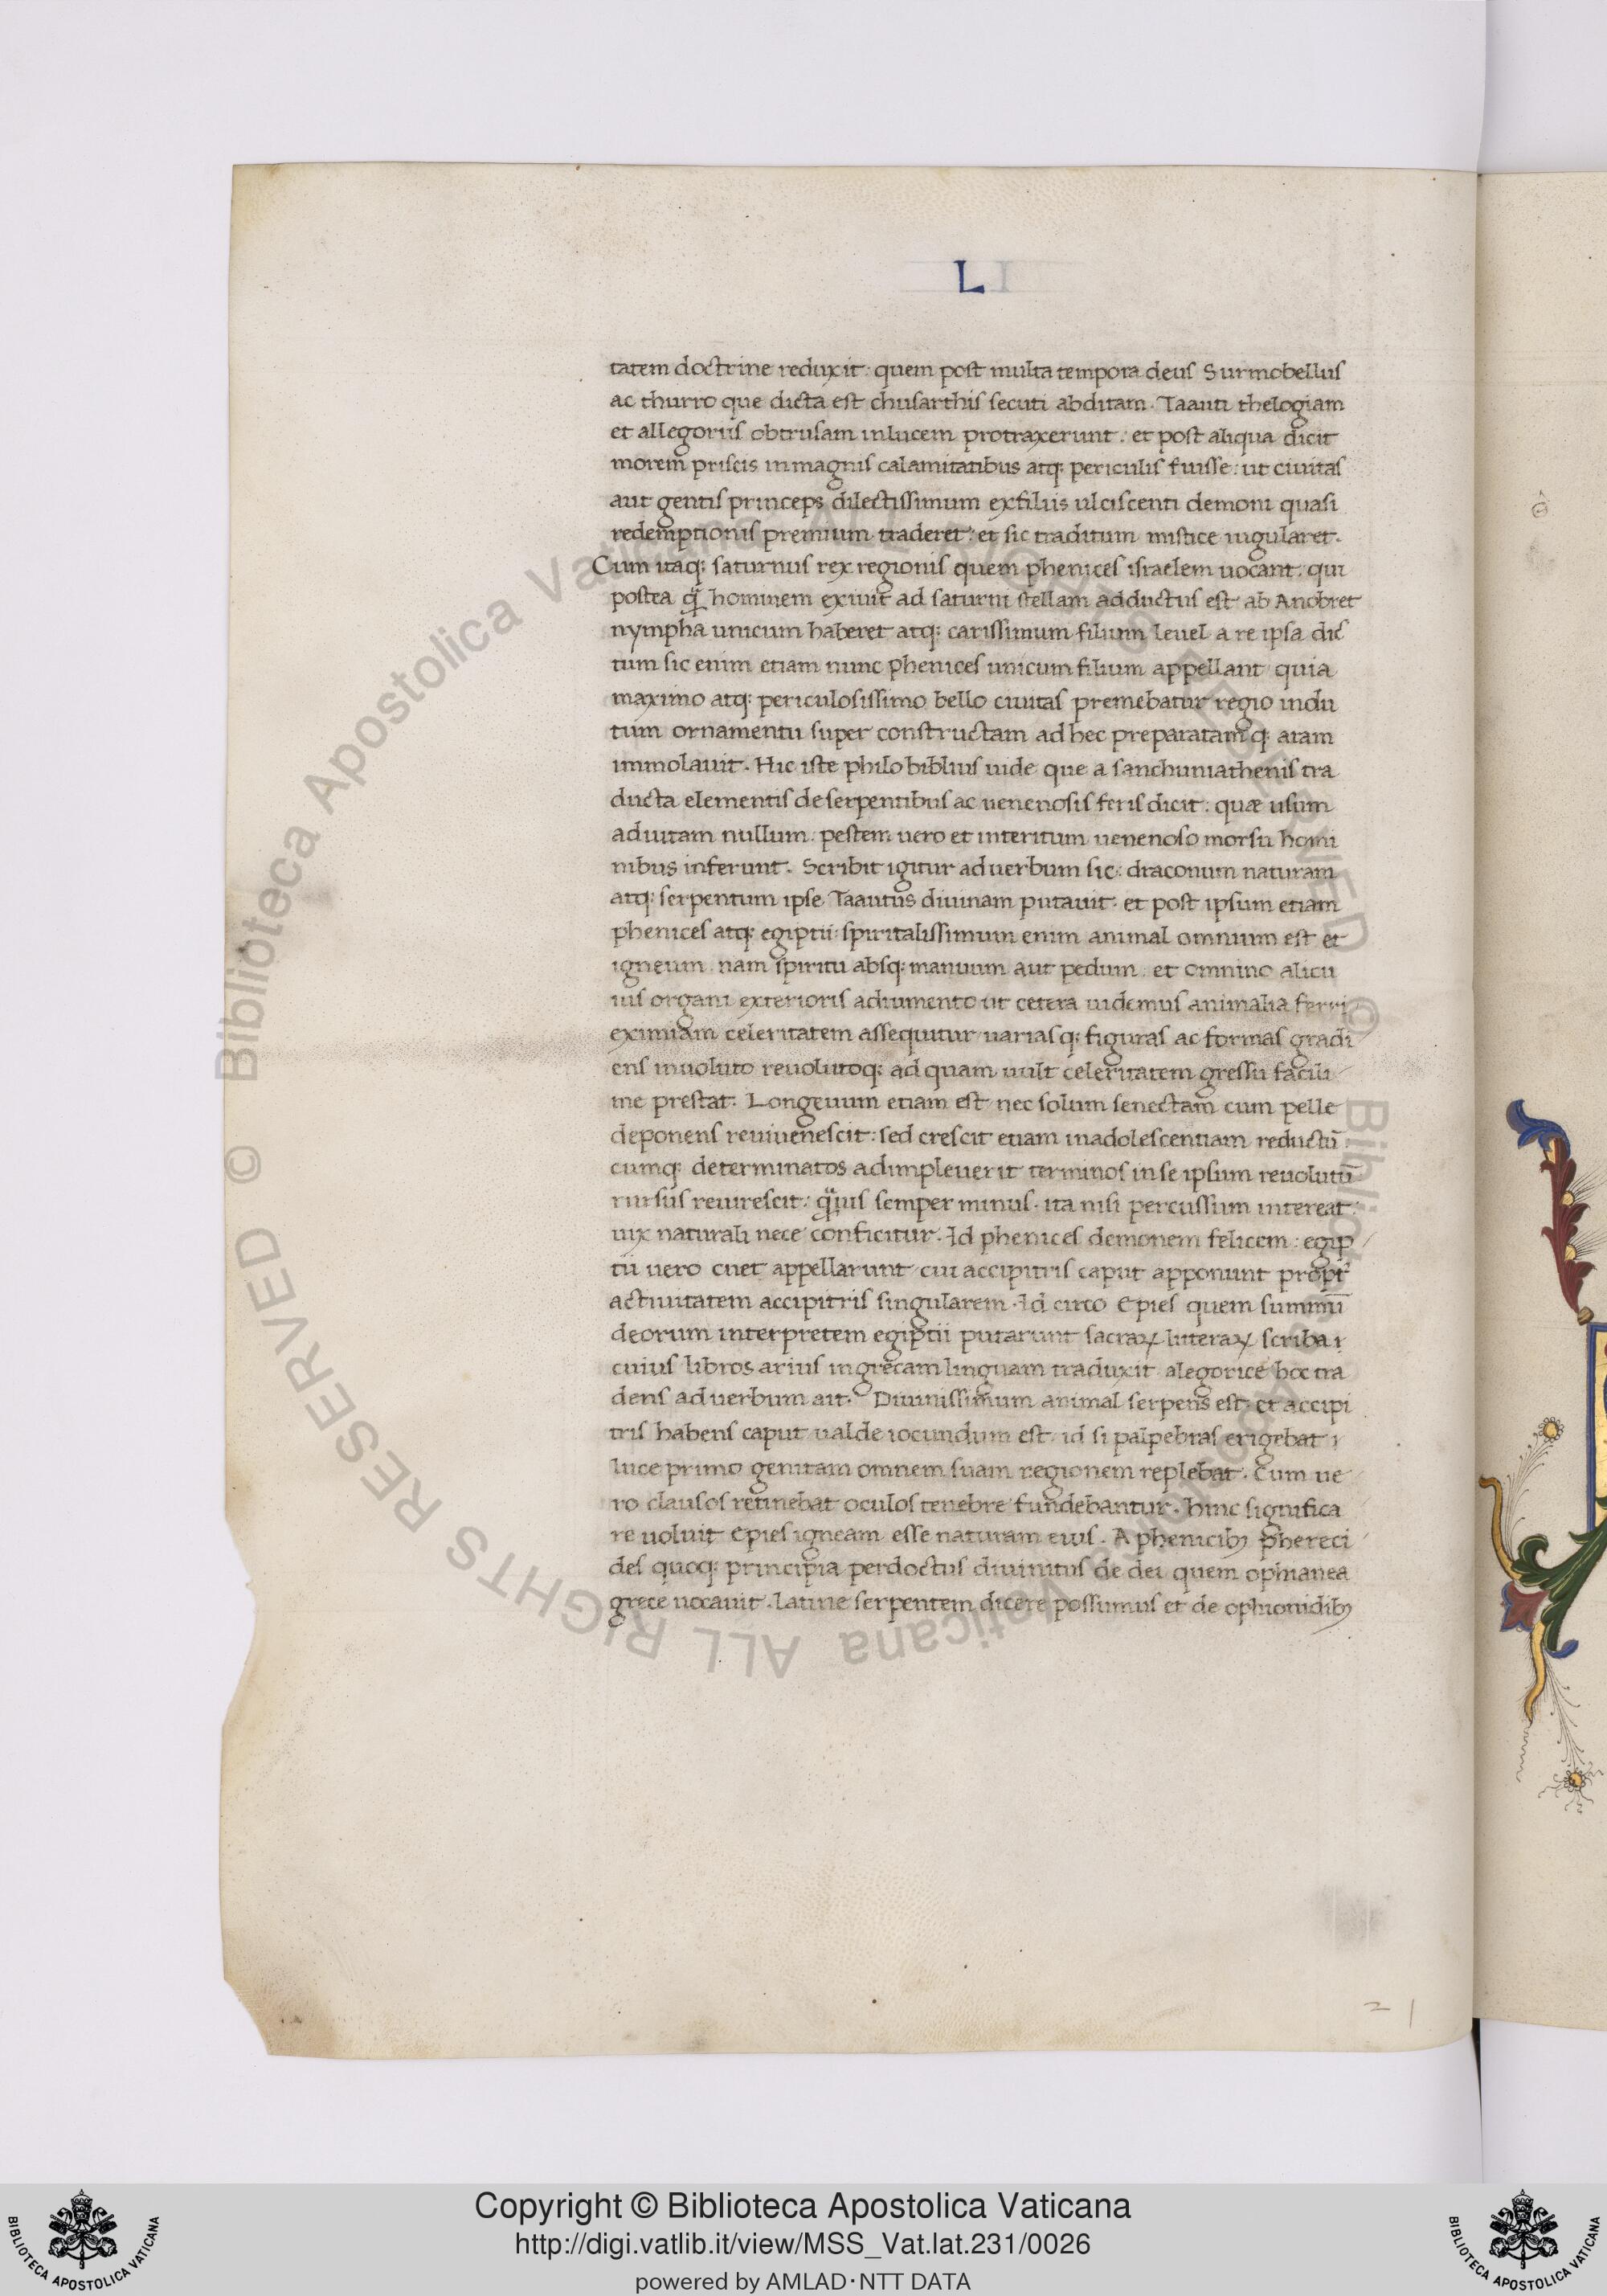 L
tatem doctrine reduxit: quem post multa tempora deus Surmobellus
ac thurro que dicta est chusarthis secuti abditam. Taauti thelogiam
et allegoriis obtrusam in lucem protraxerunt. et post aliqua dicit
morem priscis in magnis calamitatibus atq; periculis fuisse: ut ciuitas
aut gentis princeps dilectissimum ex filiis ulciscenti demoni quasi
redemptionis premium traderet: et sic traditum mistice iugularet.
Cum itaq; saturnus rex regionis quem phenices israelem uocant: qui
postea q̃ hominem exiuit ad saturni stellam adductus est ab Anobret
nympha unicum haberet atq; carissimum filium leuel a re ipsa dic
tum sic enim etiam nunc phenices unicum filium appellant quia
maximo atq; periculosissimo bello ciuitas premebatur regio indu
tum ornamentu super constructam ad hec preparatamq; aram
immolauit. Hic iste philo biblius uide que a sanchuniathenis tra
ducta elementis de serpentibus ac uenenosis feris dicit: quæ usum
ad uitam nullum: pestem uero et interitum uenenoso morsu homi
nibus inferunt. Scribit igitur ad uerbum sic: draconum naturam
atq; serpentum ipse Taautus diuinam putauit. et post ipsum etiam
phenices atq; egiptii: spiritalissimum enim animal omnium est et
igneum. nam spiritu absq; manuum aut pedum. et omnino alicu
ius organi exterioris adiumento ut cetera uidemus animalia ferri
eximiam celeritatem assequitur uariasq; figuras ac formas gradi
ens inuoluto reuolutoq; ad quam uult celeritatem gressu facili
me prestat. Longeuum etiam est nec solum senectam cum pelle
deponens reuiuenescit: sed crescit etiam in adolescentiam reductū.
cumq; determinatos adimpleuerit terminos in se ipsum reuolutū
rursus reuirescit: q̃uis semper minus. ita nisi percussum intereat
uix naturali nece conficitur. Id phenices demonem felicem: egip
tii uero cnet appellarunt cui accipitris caput apponunt propt̃
actiuitatem accipitris singularem. Id circo Epies quem summū
deorum interpretem egiptii putarunt sacraꝝ litteraꝝ scriba
cuius libros arius in grecam linguam traduxit alegorice hoc tra
dens ad uerbum ait. Diuinissimum animal serpens est et accipi
tris habens caput ualde iocundum est. id si palpebras erigebat
luce primo genitam omnem suam regionem replebat. Cum ue
ro clausos retinebat oculos tenebre fundebantur. hinc significa
re uoluit Epies igneam esse naturam eius. A phenicibꝫ phereci
des quoq; principia perdoctus diuinitus de dei quem ophianea
grece uocauit. latine serpentem dicere possumus et de ophionidibꝫ
21
Copyright © Biblioteca Apostolica Vaticana
http://digi.vatlib.it/view/MSS_Vat.lat.231/0026
powered by AMLAD·NTT DATA